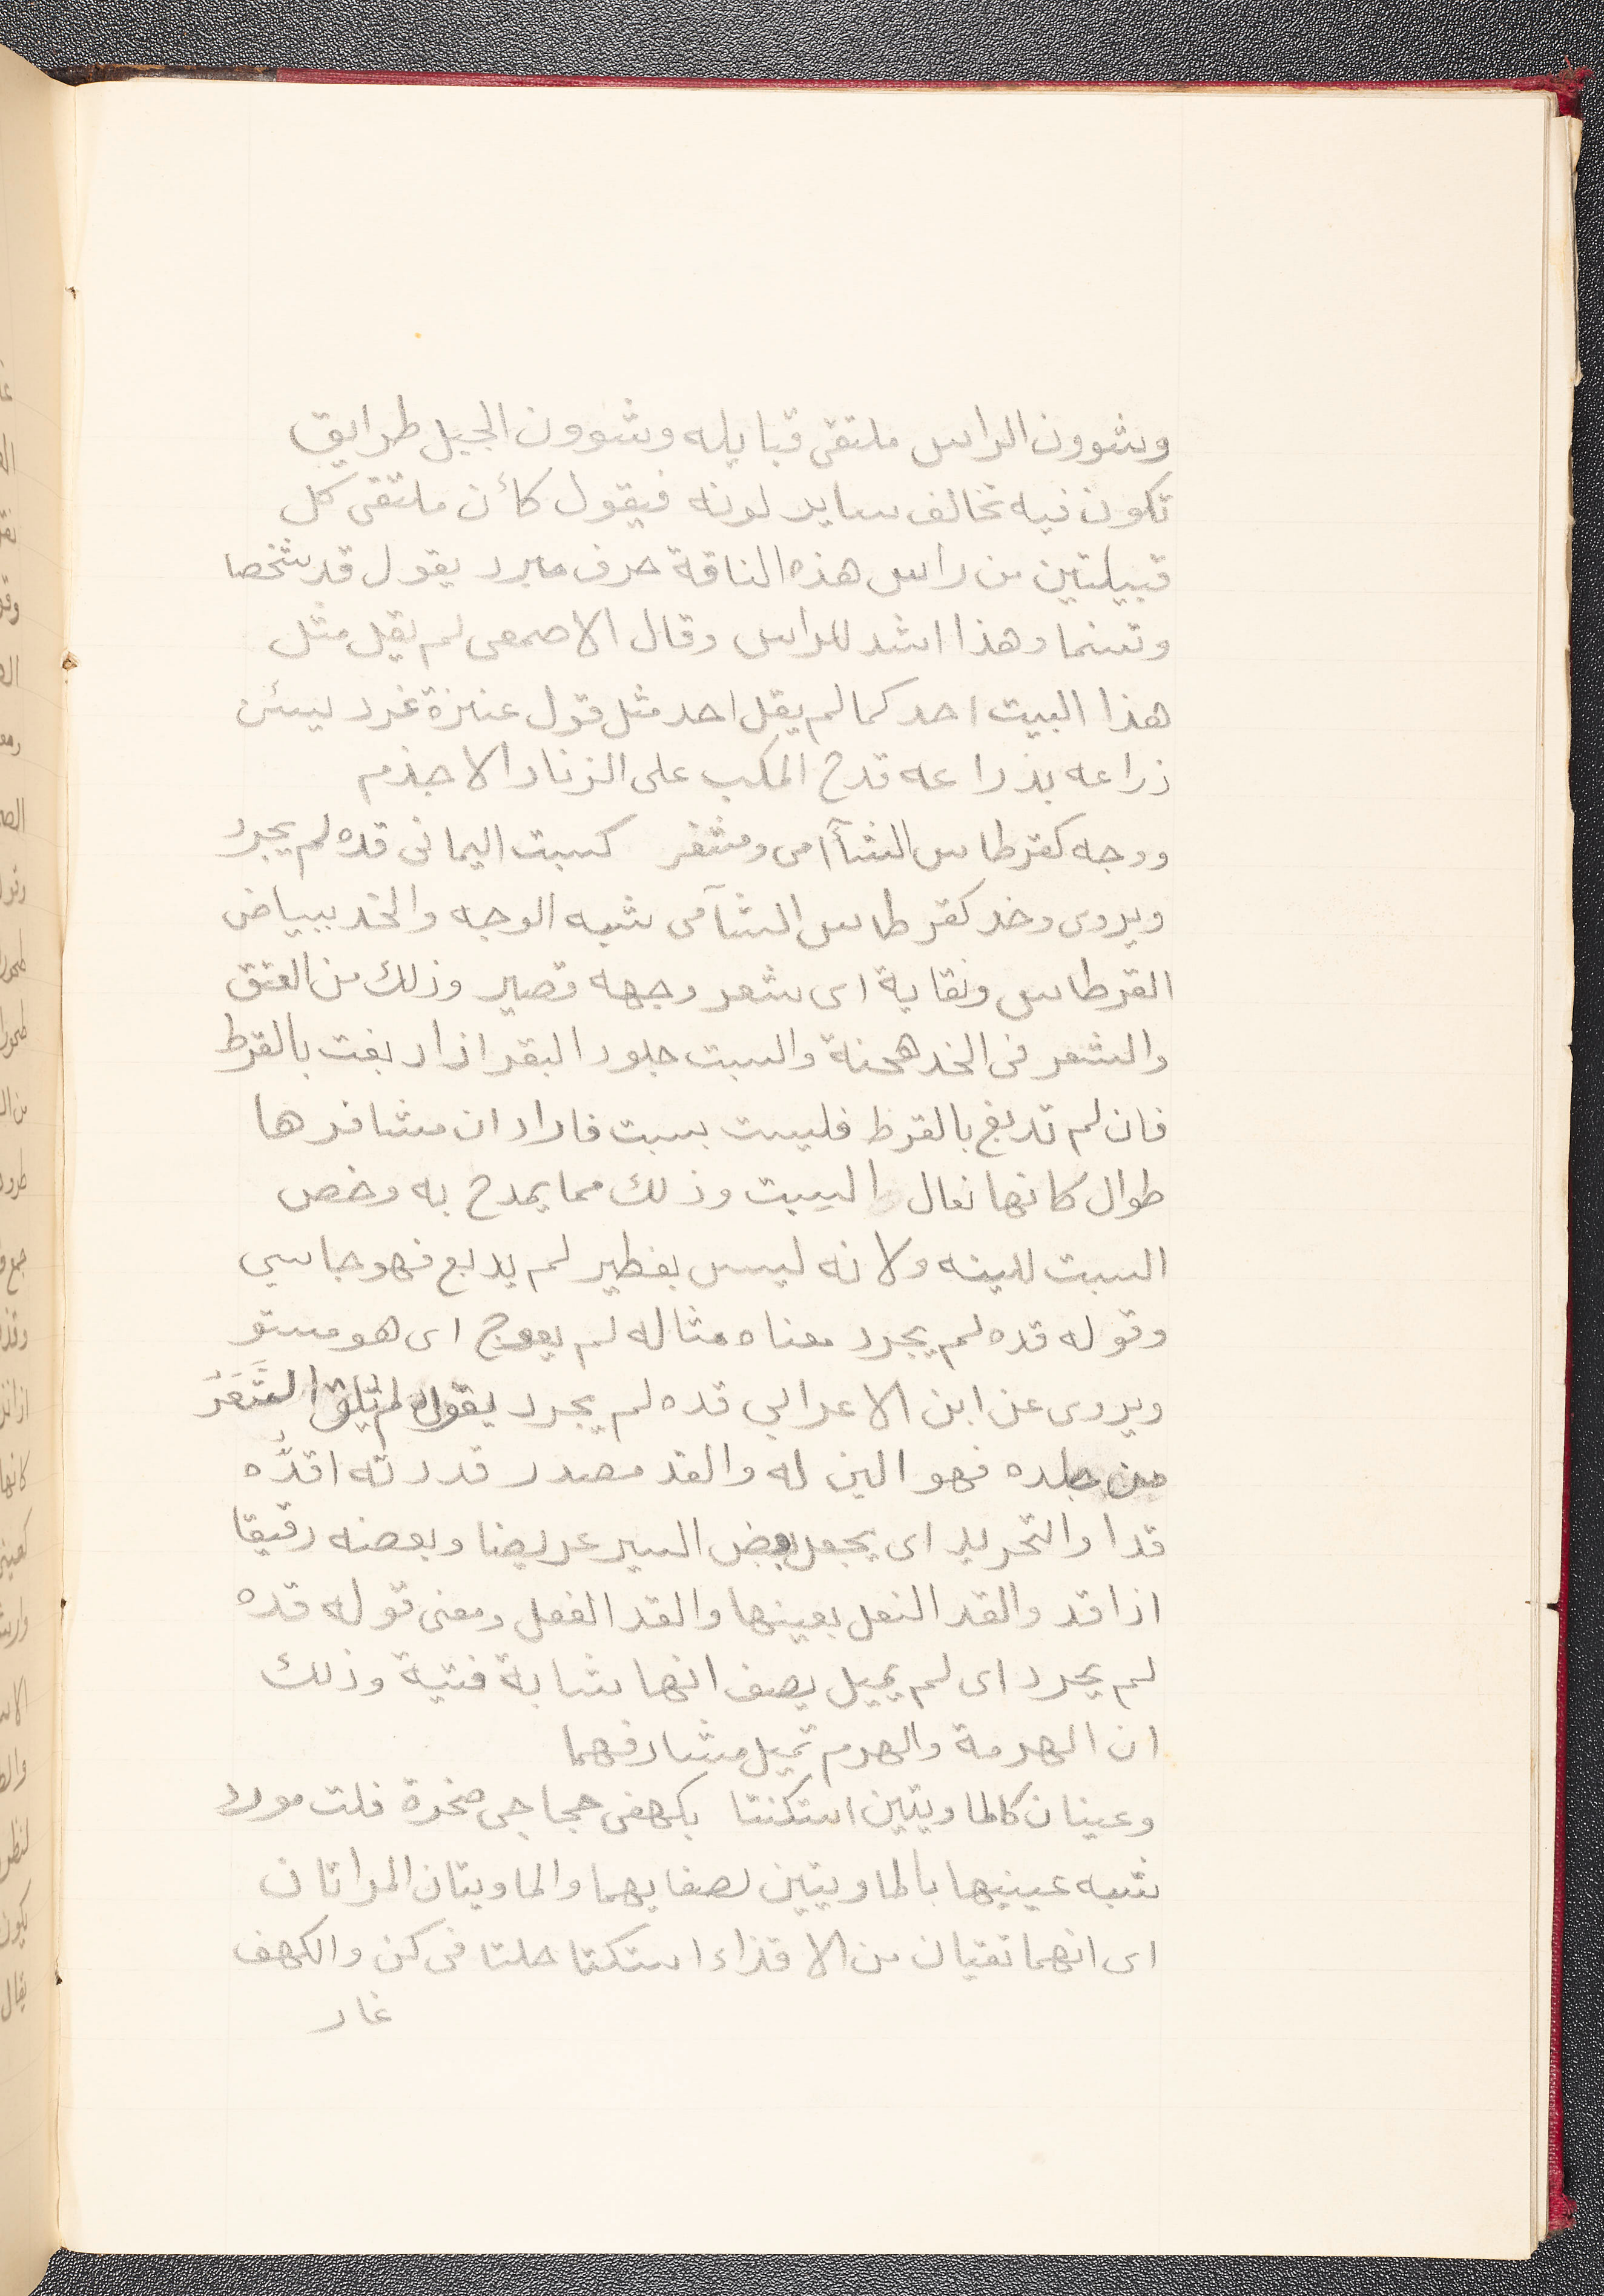 وشوون الراس ملتقى قبايله وشوون الجبل طرايق
تكون فيه تخالف ساير لونه فيقول كأن ملتقى كل
قبيلتين من راس هذه الناقة حرف مبرد يقول قد شخصا
وتسنما وهذا اشد للراس وقال الاصمعى لم يقل مثل
هذا البيت احد كما لم يقل احد مثل قول عنزة غرد يسئن
زراعه بذراعه قدح المكب على الزناد الاجذم
ووجه كقرطاس الشآامى ومشفر كسبت اليمانى قده لم يجرد
ويروى وخد كقرطاس الشآمى شبه الوجه والخد ببياض
القرطاس ونقاية اى شعر وجهه قصير وذلك من العتق
والشعر فى الخد هجنة والسبت جلود البقر اذا دبغت بالقرظ
فان لم تدبغ بالقرظ فليست بسبت فاراد ان مشافرها
طوال كانها نعال السبت وذلك مما يمدح به وخص
السبت للينه ولانه ليس بفطير لم يدبع فهو جاسي
وقوله قده لم يجرد معناه مثاله لم يعوج اى هو مستو
ويروى عن ابن الاعرابي قده لم يجرد يقول لم يلق الشَّعَرُ
من جلده فهو الين له والقد مصدر قددته اقدُّه
قدا والتحريد اى يجعل بعض السير عريضا وبعضه رقيقا
اذا قد والقد النعل بعينها والقد الفعل ومعنى قوله قده
لم يحرد اى لم يميل يصف انها شابة فتية وذلك
ان الهرمة والهرم تميل مشارفهما
وعينان كالماويتين استكنتا بكهفى حجاجى صخرة قلت مورد
شبه عينيها بالماويتين لصفايهما والماويتان المراتان
اى انهما تقيان من الاقذاء استكنتا حلتا فى كن والكهف
غار